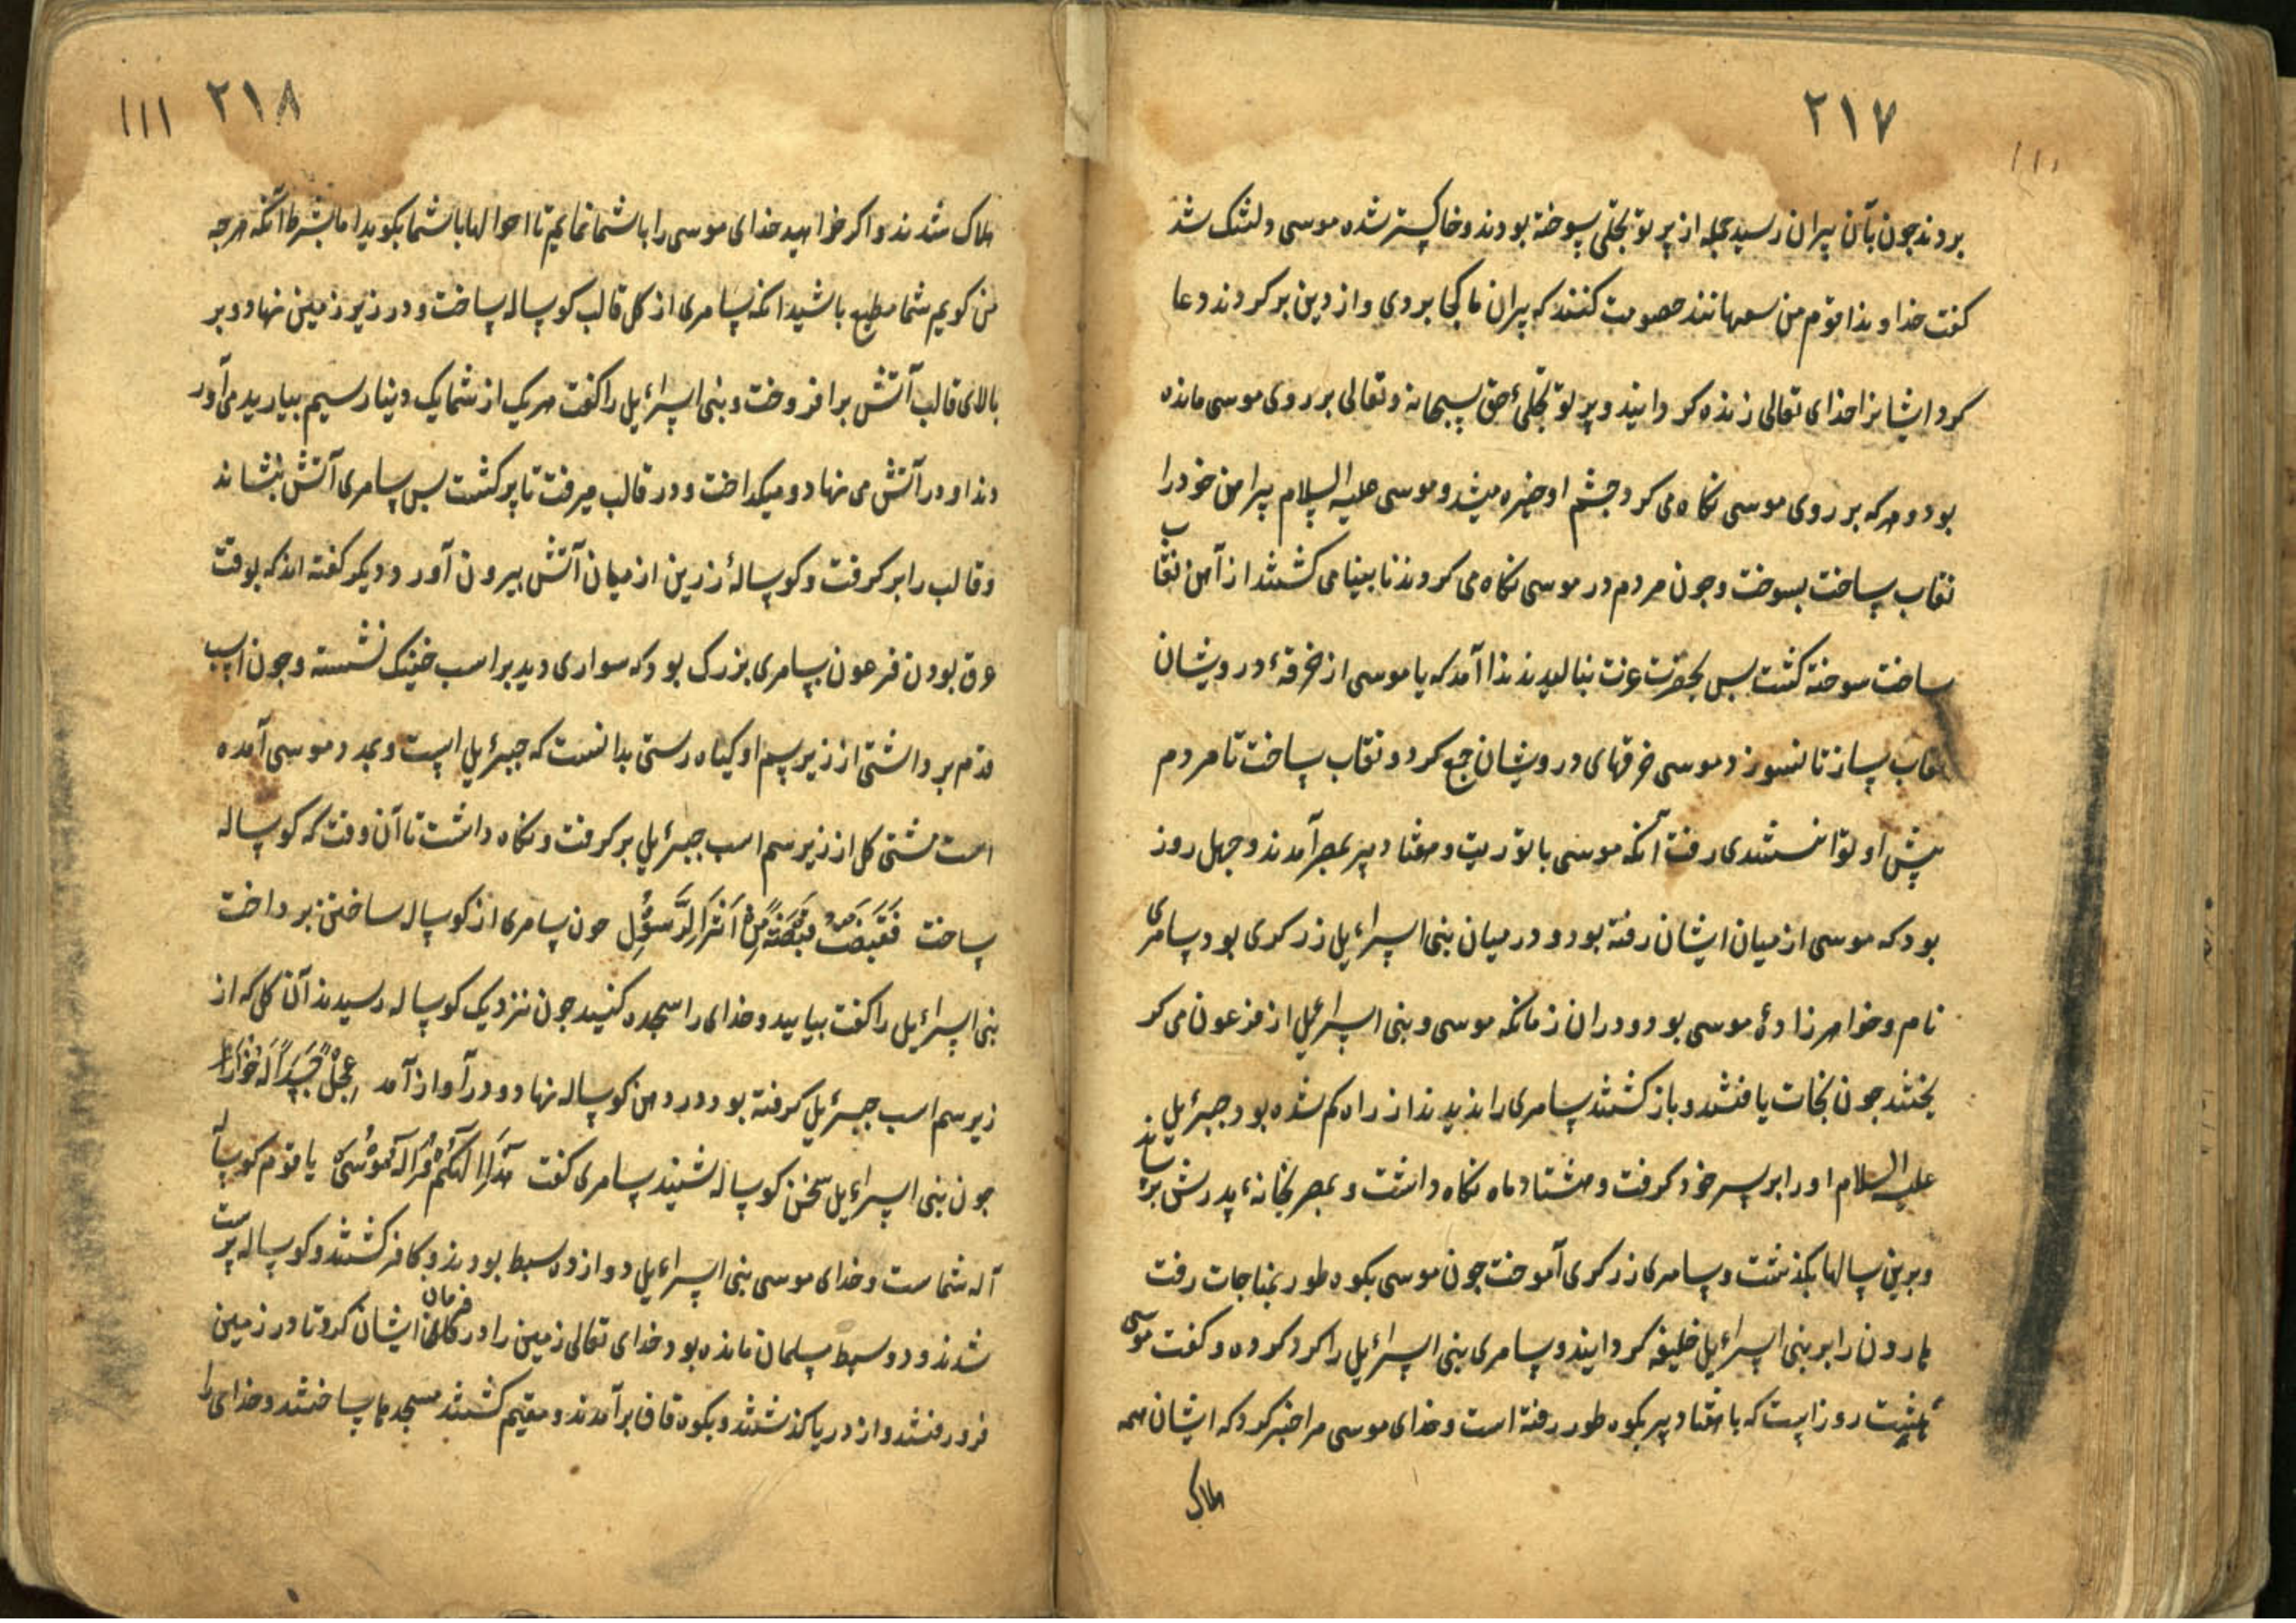 ۲۱۷
۱۱۱
بردند چون بآن پیران رسید جمله از پرتو تجلی سوخته بودند و خاکستر شده موسی دلتنک شد
کفت خداوندا قوم من سفهانند خصومت کنند که پیران ما کجا بردی و از دین برکردند دعا
کرد ایشانرا خدای تعالی زنده کردانید و پرتو تجلئ حق سبحانه و تعالی بر روی موسی مانده
بود و هر که بر روی موسی نکاه می کرد چشم او خیره میشد و موسی علیه السلام پیراهن خود را
نقاب ساخت بسوخت و چون مردم در موسی نکاه می کردند نابینا می کشتند از آهن نقاب
ساخت سوخته کشت پس بحضرت عزت بنالید ندا آمد که یا موسی از خرقهٔ درویشان
نقاب ساز تا نسوزد موسی خرقهای درویشان جمع کرد و نقاب ساخت تا مردم
پیش او توانستندی رفت آنکه موسی با توریت و هفتاد پیر بمصر آمدند و چهل روز
بود که موسی از میان ایشان رفته بود و در میان بنی اسرائیل زرکری بود سامری
نام و خواهرزادهٔ موسی بود و دران زمانکه موسی و بنی اسرائیل از فرعون می کر
یختند چون نجات یافتند و باز کشتند سامری را ندیدند از راه کم شده بود جبرئیل
علیه السلام او را بر پر خود کرفت و هشتاد ماه نکاه داشت و بمصر بخانهٔ پدرش رسانید
و برین سالها بکذشت و سامری زرکری آموخت چون موسی بکوه طور بمناجات رفت
هارون را بر بنی اسرائیل خلیفه کردانید و سامری بنی اسرائیل را کرد کرده و کفت موسی
روز است که با هفتاد پیر بکوه طور رفته است و خدای موسی مرا خبر کرد که ایشان همه
هلاک
۲۱۸
۱۱۱
هلاک شدند و اکر خواهید خدای موسی را باشما نمایم تا احوالها باشما بکوید اما بشرط آنکه هرچه
من کویم شما مطیع باشید انکه سامری از کل قالب کوساله ساخت و در زیر زمین نهاد و بر
بالای قالب آتش برافروخت و بنی اسرائیل را کفت هر یک از شما یک دینار سیم بیارید می آور
دند او در آتش می نهاد و میکداخت و در قالب میرفت تا پر کشت پس سامری آتش بنشاند
و قالب را برکرفت و کوسالهٔ زرین از میان آتش بیرون آورد و دیکر کفته اند که بوقت
غرق بودن فرعون سامری بزرک بود که سواری دید بر اسب خنک نشسته و چون اسپ
قدم برداشتی از زیر سم او کیاه رستی بدانست که جبرئیل است و بمدد موسی آمده
است مشتی کل از زیر سم اسب جبرئیل برکرفت و نکاه داشت تا آن وقت که کوساله
ساخت فَقَبَضْتُ قَبْضَةً مِنْ اَثَرِ الرَّسُوْلِ چون سامری از کوساله ساختن پرداخت
بنی اسرائیل را کفت بیایید و خدای را سجده کنید چون نزدیک کوساله رسیدند آن کل که از
زیر سم اسب جبرئیل کرفته بود در دهن کوساله نهاد و در آواز آمد عِجْلاً جَسَداً لَهُ خُوَارٌ
چون بنی اسرائیل سخن کوساله شنید سامری کفت هَذَا اِلَهُکُمْ وَ اِلَهُ مُوْسَی یا قوم کوساله
آله شماست و خدای موسی بنی اسرائیل دوازده سبط بودند و کافر کشتند و کوساله پرست
شدند و دو سبط مسلمان مانده بود خدای تعالی زمین را در فرمان ایشان کرد تا در زمین
فرو رفتند و از دریا کذشتند و بکوه قاف برآمدند و مقیم کشتند مسجدها ساختند و خدای را